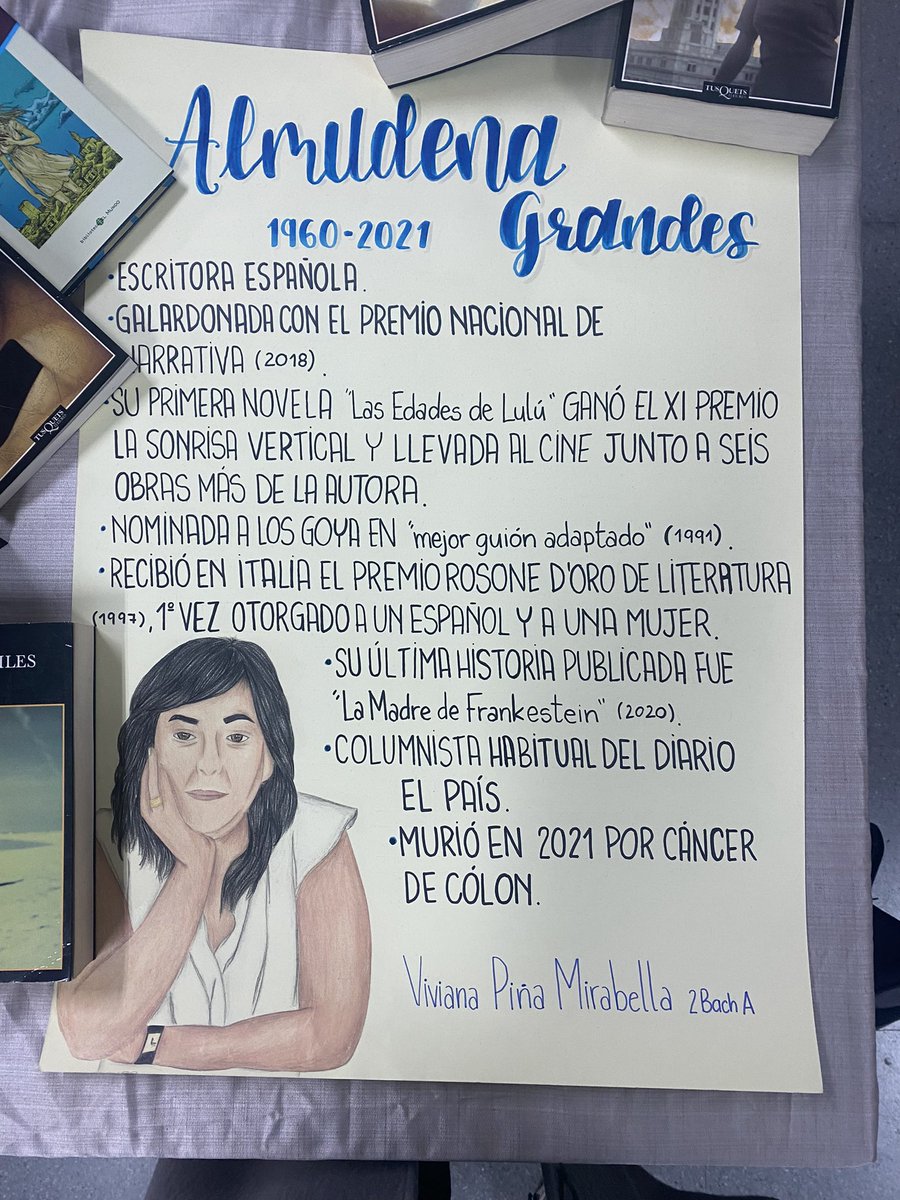 TUSQUETS
Biblioteca EL MUNDO
TUSQUETS
ILES
Almudena
Grandes
1960-2021
•ESCRITORA ESPAÑOLA.
•GALARDONADA CON EL PREMIO NACIONAL DE
NARRATIVA (2018).
•SU PRIMERA NOVELA "Las Edades de Lulú" GANÓ EL XI PREMIO
LA SONRISA VERTICAL Y LLEVADA AL CINE JUNTO A SEIS
OBRAS MÁS DE LA AUTORA.
•NOMINADA A LOS GOYA EN "mejor guión adaptado" (1991).
•RECIBIÓ EN ITALIA EL PREMIO ROSONE D'ORO DE LITERATURA
(1997), 1ª VEZ OTORGADO A UN ESPAÑOL Y A UNA MUJER.
•SU ÚLTIMA HISTORIA PUBLICADA FUE
"La Madre de Frankestein" (2020).
•COLUMNISTA HABITUAL DEL DIARIO
EL PAÍS.
•MURIÓ EN 2021 POR CÁNCER
DE CÓLON.
Viviana Piña Mirabella 2Bach A